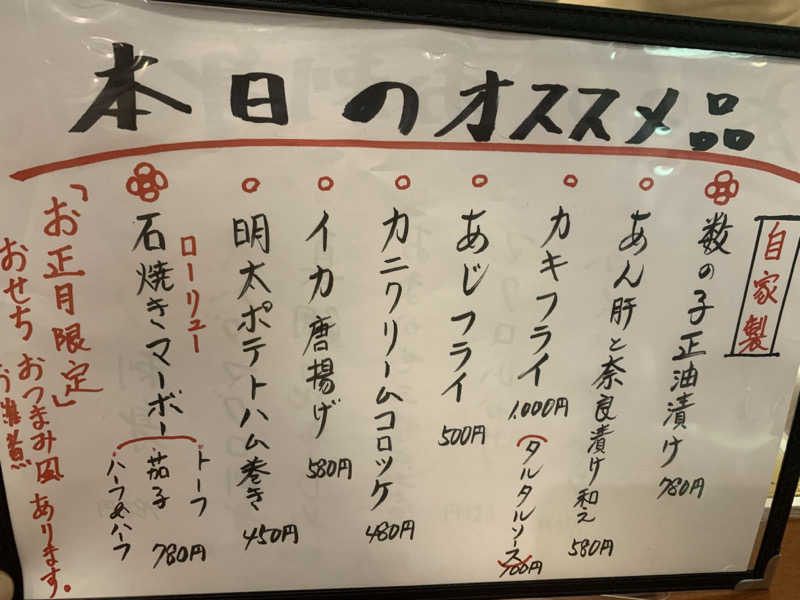 本日のオススメ品
自家製
数の子正油漬け 780円
あん肝と奈良漬け和え 580円
カキフライ 1,000円
(タルタルソース) 700円
あじフライ 500円
カニクリームコロッケ 480円
イカ唐揚げ 580円
明太ポテトハム巻き 450円
ローリュー
石焼きマーボー
トーフ
茄子 780円
ハーフ&ハーフ
「お正月限定」
おせち おつまみ皿 あります。
お雑煮